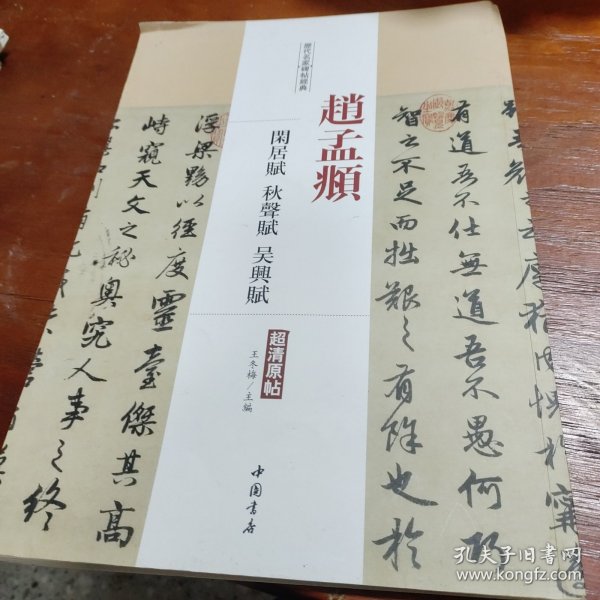 歷代名家碑帖經典
趙孟頫
閑居賦 秋聲賦 吴興賦
超清原帖
王冬梅/主編
中國書店
有道吾不仕無道吾不愚何巧
智之不足而拙艱之有餘也於
浮梁黝以徑度靈臺傑其高
峙窺天文之秘奥究人事之終
孔夫子旧书网
www.kongfz.com